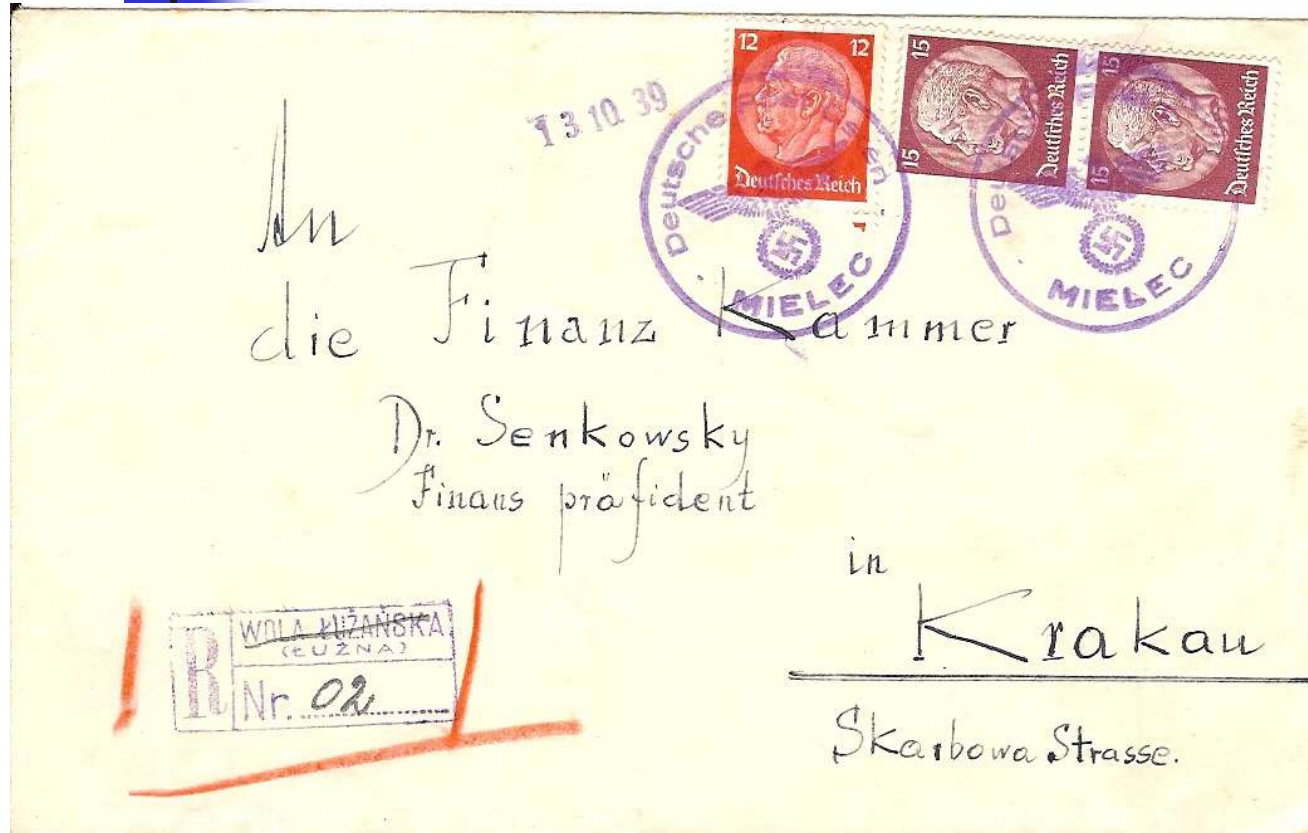 12 12
Deutsches Reich
15
15
Deutsches Reich
15
15
Deutsches Reich
13 10 39
Deutsche
MIELEC
De
MIELEC
An
die Finanz Kammer
Dr. Senkowsky
Finans präſident
in
Krakau
Skarbowa Strasse.
R
WOLA ŁUŻAŃSKA
(ŁUŻNA)
Nr. 02